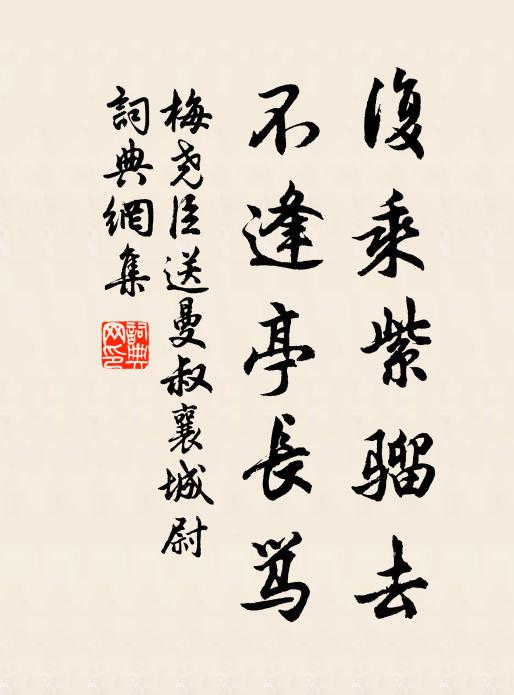 復乘紫骝去
不逢亭長骂
梅尧臣送曼叔襄城尉
詞典網集
詞典网印